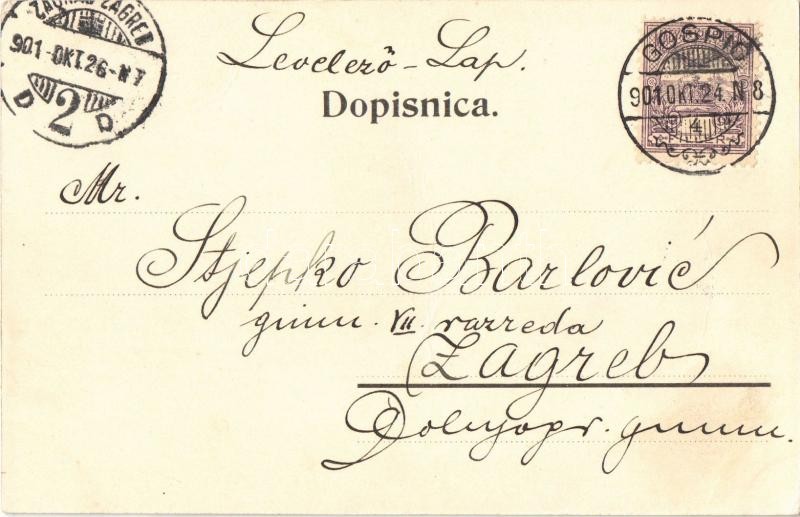 ZAGRAB ZAGREB
901-OKT.26-N7
D 2 D
GOSPIĆ
901 OKT.24 N8
4
Levelező-Lap.
Dopisnica.
Mr.
Stjepko Barlović
gimn. VII. razreda
Zagreb
Dolnjogr. gimn.